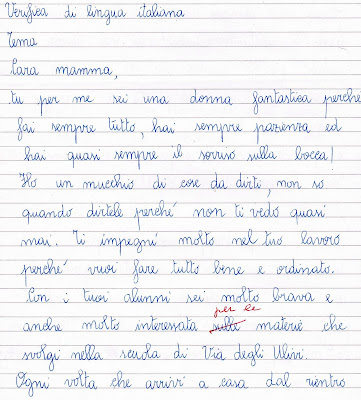 Verifica di lingua italiana
Tema
Cara mamma,
tu per me sei una donna fantastica perché
fai sempre tutto, hai sempre pazienza ed
hai quasi sempre il sorriso sulla bocca!
Ho un mucchio di cose da dirti, non so
quando dirtele perché non ti vedo quasi
mai. Ti impegni molto nel tuo lavoro
perché vuoi fare tutto bene e ordinato.
Con i tuoi alunni sei molto brava e
per le
anche molto interessata sulle materie che
svolgi nella scuola di Via degli Ulivi.
Ogni volta che arrivi a casa dal rientro